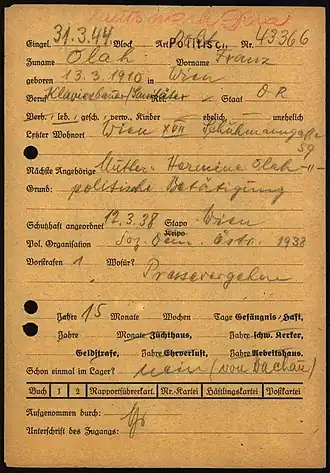 Eingel. 31.3.44 Block Art POLITISCH Nr. 43366
Zuname Olah Vorname Franz
geboren 13.3.1910 in Wien
Beruf Klavierbauer Rel. Staat D R
Verh., led., gesch., verw. Kinder ehelich, unehelich
Letzter Wohnort Wien XVII Schuhmanngasse
59
Nächste Angehörige Mutter: Hermine Olah -"-
Grund: politische Betätigung
Schutzhaft angeordnet 12.3.38 Stapo Kripo Wien
Pol. Organisation Soz. Dem. Östr. 1938
Vorstrafen 1 Wofür?
Pressevergehen
Jahre 15 Monate Wochen Tage Gefängnis/Haft,
Jahre Monate Züchthaus, Jahre schw. Kerker,
Geldstrafe, Jahre Ehrverlust, Jahre Arbeitshaus.
Schon einmal im Lager? nein (von Dachau)
Buch 1 2 Rapportführerkart. Nr.-Kartei Häftlingskartei Postkartei
Aufgenommen durch:
Unterschrift des Zugangs: